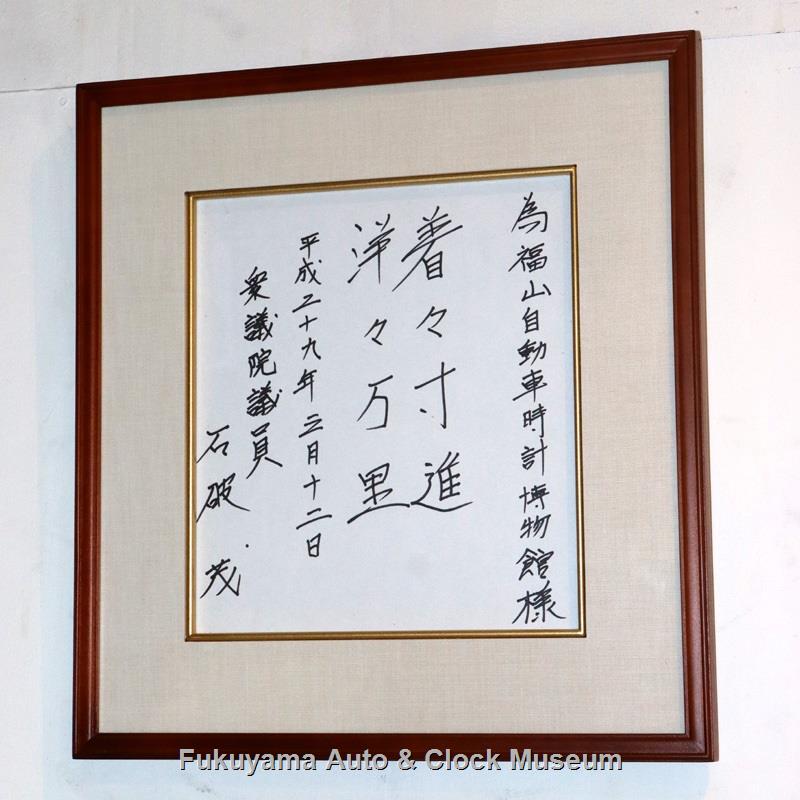 為福山自動車時計博物館様
着々寸進
洋々万里
平成二十九年三月十二日
衆議院議員
石破茂
Fukuyama Auto & Clock Museum